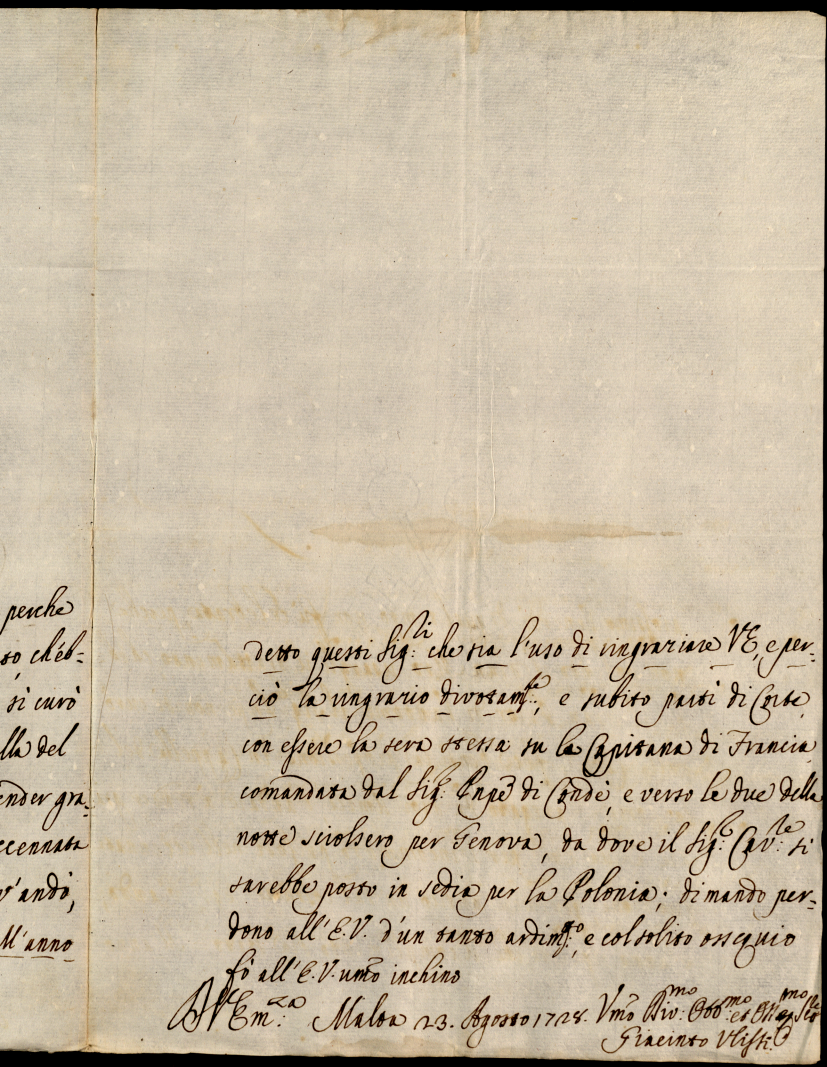 perche
to, ch'èb-
si curò
lla del
ender gra-
ccennata
v'andò,
ll'anno
detto questi Sig:ri che sia l'uso di ringraziare V E, e per-
ciò la ringrazio divotam:te, e subito partì di Corte,
con essere la sera stessa su la Capitana di Francia
comandata dal Sig:e Pnpē di Condè, e verso le due della
notte sciolsero per Genova, da dove il Sig:e Cav:re si
sarebbe posto in sedia per la Polonia; dimando per-
dono all'E.V. d'un tanto ardim:to, e col solito ossequio
fò all'E.V. umo inchino
Em:za Malta 23. Agosto 1728. Vmo Div:mo Obb:mo et
Giacinto